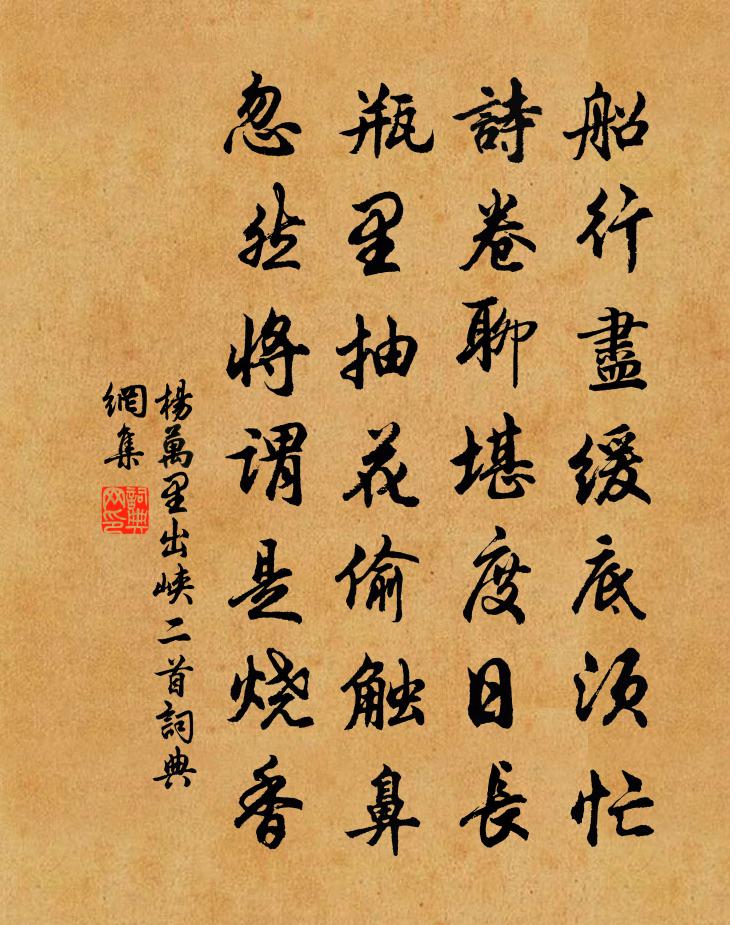 船行盡緩底須忙
詩卷聊堪度日長
瓶里抽花偷触鼻
忽然將謂是烧香
楊萬里出峽二首詞典
網集
詞典
网印